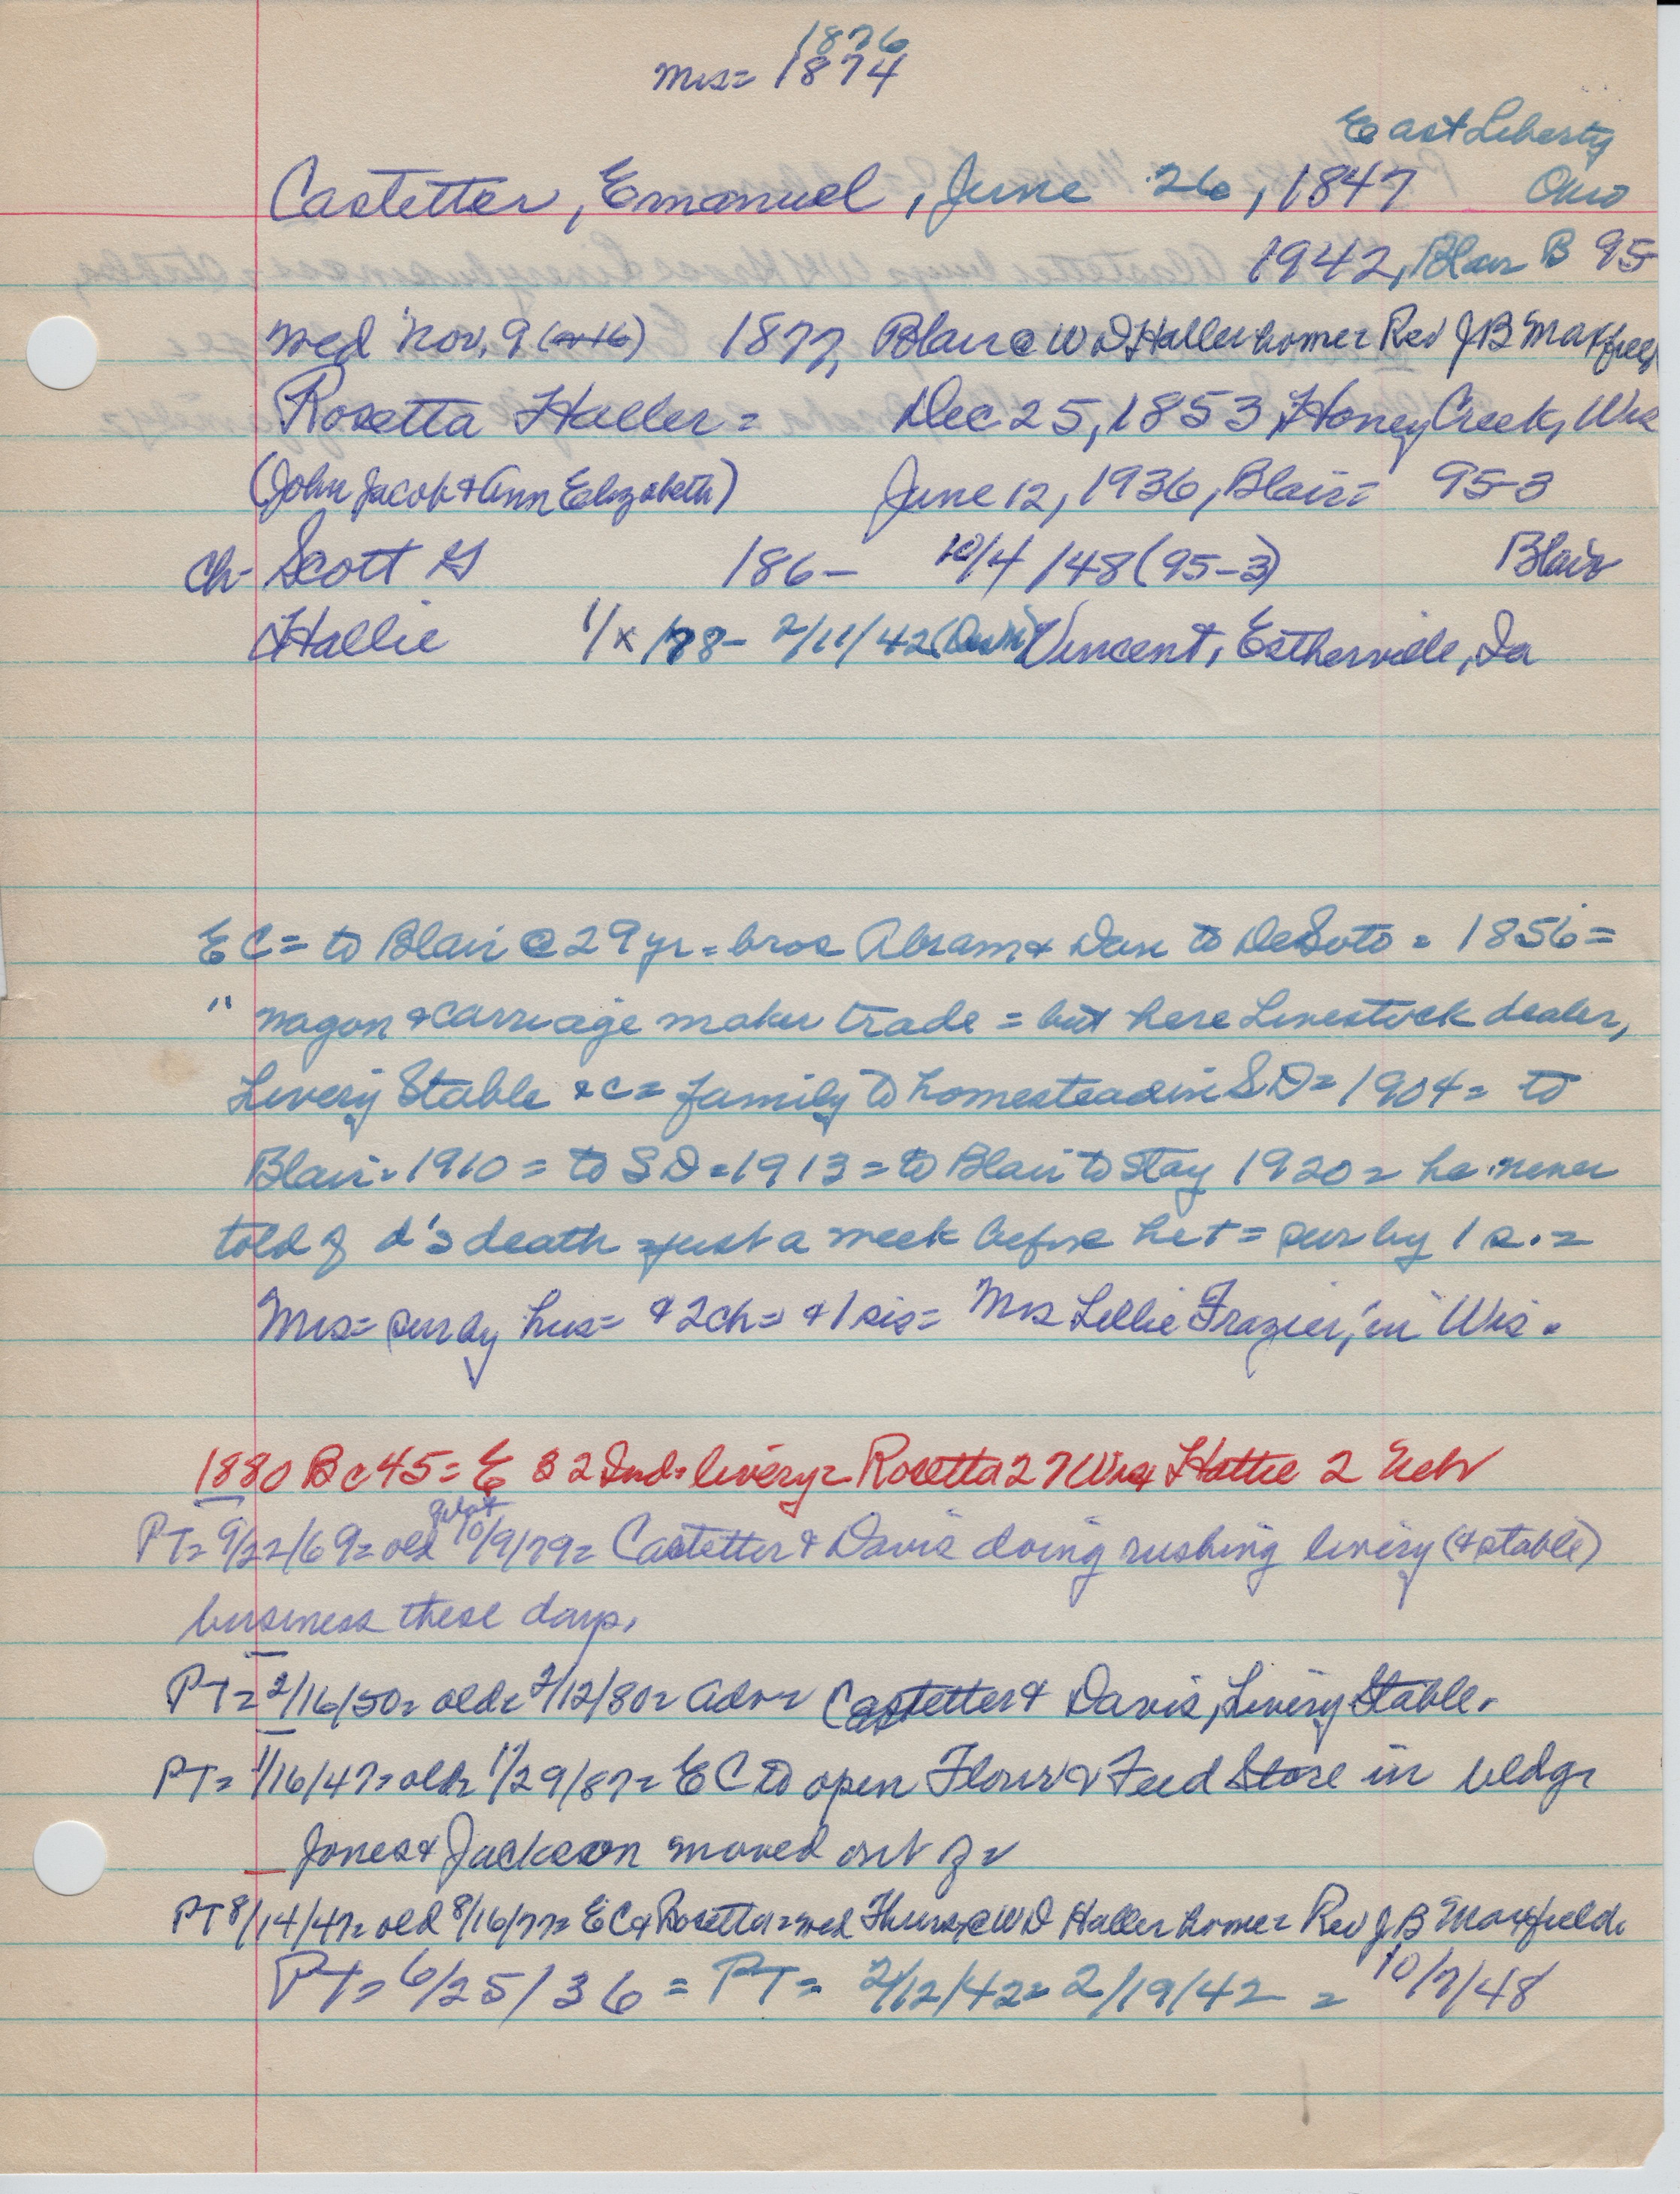 1876
Mrs= 1874
East Liberty
Castetter, Emanuel, June 26, 1847 Ohio
1942, Blair B 95-
med Nov. 9 (or 16) 1877, Blair @ W D Haller home= Rev J B Maxfield
Rosetta Haller= Dec 25, 1853 Honey Creek, Wis
(John Jacob & Ann Elizabeth) June 12, 1936, Blair= 95-3
Ch- Scott G 186- 10/4/48 (95-3) Blair
Hallie 1/x/88- 2/11/42 Vincent, Estherville, Ia
E C= to Blair @ 29 yr= bros Abram & Dan to DeSoto= 1856=
" wagon & carriage maker trade= but here Livestock dealer,
Livery Stable &c= family to homestead in S D= 1904= to
Blair= 1910= to S D= 1913= to Blair to stay 1920= he never
told of d's death= just a week before he+= sur by 1 s.=
Mrs= sur by hus= & 2 ch= & 1 sis= Mrs Lillie Frazier, in Wis.
1880 B c 45= E 32 Ind= livery= Rosetta 27 Wis Hattie 2 Neb
PT= 9/22/69= old Pilot 10/9/79= Castetter & Davis doing rushing livery (& stable)
business these days.
PT= 2/16/50= old= 2/12/80= adv= Castetter & Davis, Livery Stable.
PT= 1/16/47= old= 1/29/87= E C to open Flour & Feed Store in bldg=
Jones & Jackson moved out of=
PT 8/14/47= old 8/16/77= E C & Rosetta= med Thurs, @ W D Haller home= Rev J B Maxfield.
PT= 6/25/36= PT= 2/12/42= 2/19/42= 10/7/48